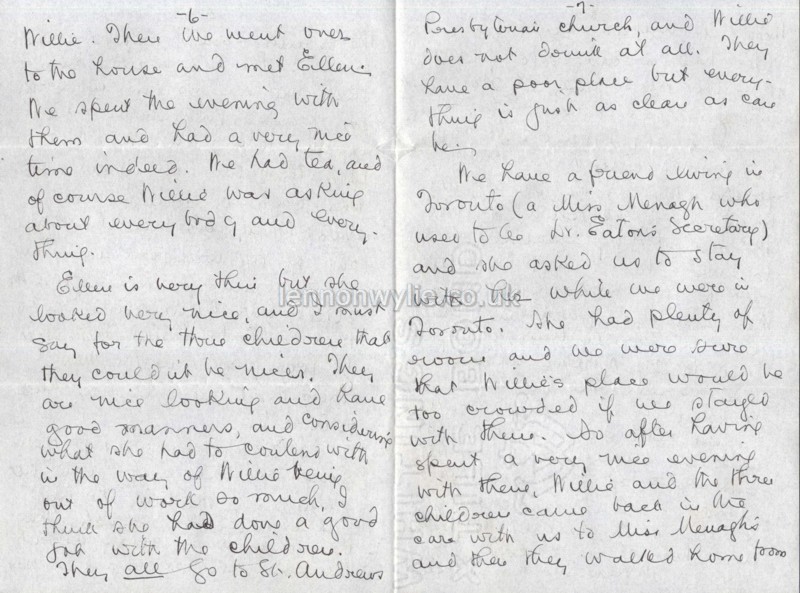 -6-
Willie. Then we went over
to the house and met Ellen.
We spent the evening with
them and had a very nice
time indeed. We had tea, and
of course Willie was asking
about everybody and every-
thing.
Ellen is very thin but she
looked very nice, and I must
say for the three children that
they couldn't be nicer. They
are nice looking and have
good manners, and considering
what she had to contend with
in the way of Willie being
out of work so much, I
think she had done a good
job with the children.
They all go to St. Andrews
-7-
Presbyterian church, and Willie
does not drink at all. They
have a poor place but every-
thing is just as clean as can
be.
We have a friend living in
Toronto (a Miss Menagh who
used to be Dr. Eaton's Secretary)
and she asked us to stay
with her while we were in
Toronto. She had plenty of
room and we were sure
that Willie's place would be
too crowded if we stayed
with them. So after having
spent a very nice evening
with them, Willie and the three
children came back in the
car with us to Miss Menagh's
and then they walked home from
lennonwylie.co.uk